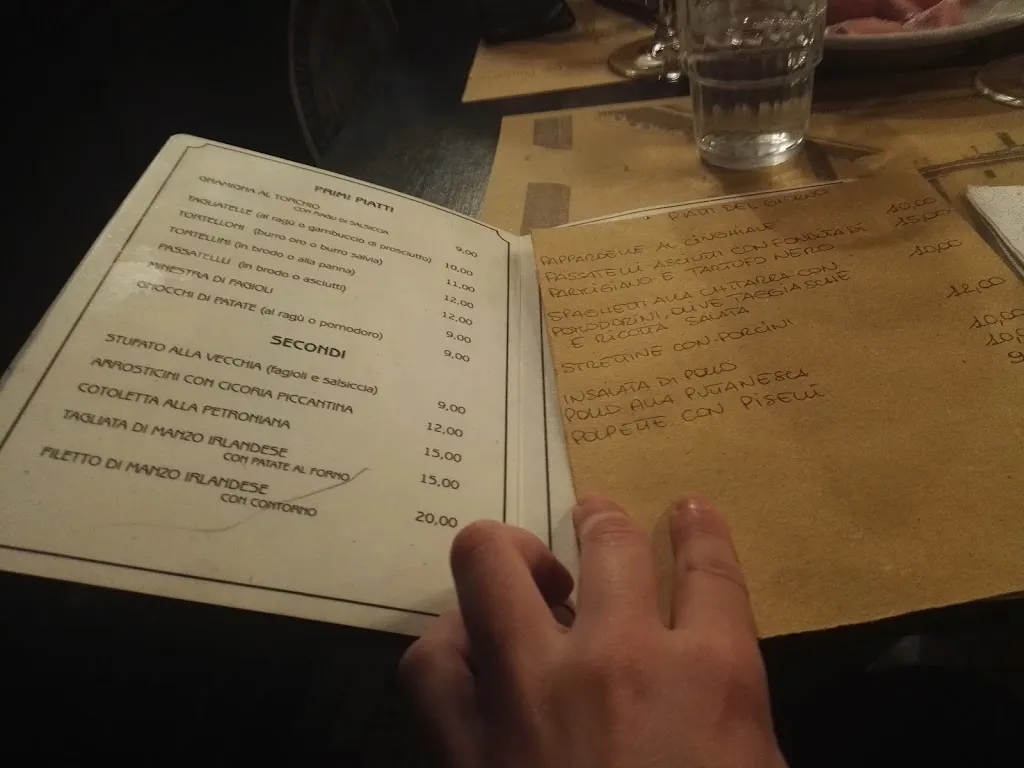 PRIMI PIATTI
GRAMIGNA AL TORCHIO
CON RAGU DI SALSICCIA 9,00
TAGLIATELLE (al ragù o gambuccio di prosciutto) 10,00
TORTELLONI (burro oro o burro salvia) 11,00
TORTELLINI (in brodo o alla panna) 12,00
PASSATELLI (in brodo o asciutti) 12,00
MINESTRA DI FAGIOLI 9,00
GNOCCHI DI PATATE (al ragù o pomodoro) 9,00
SECONDI
STUFATO ALLA VECCHIA (fagioli e salsiccia) 9,00
ARROSTICINI CON CICORIA PICCANTINA 12,00
COTOLETTA ALLA PETRONIANA 15,00
TAGLIATA DI MANZO IRLANDESE
CON PATATE AL FORNO 15,00
FILETTO DI MANZO IRLANDESE
CON CONTORNO 20,00
PIATTI DEL GIORNO
PAPPARDELLE AL CINGHIALE 10,00
PASSATELLI ASCIUTTI CON FONDUTA DI 15,00
PARMIGIANO E TARTUFO NERO
SPAGHETTI ALLA CHITARRA CON 10,00
POMODORINI, OLIVE TAGGIASCHE
E RICOTTA SALATA
STRETTINE CON PORCINI 12,00
INSALATA DI POLLO 10,00
POLLO ALLA PUTTANESCA
POLPETTE CON PISELLI